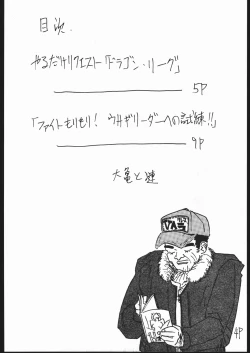 目次.
やるだけリクエスト「ドラゴン・リーグ」
5P
「ファイトもりもり! ウサギリーダーへの試練!!」
9P
大亀と謎
4P